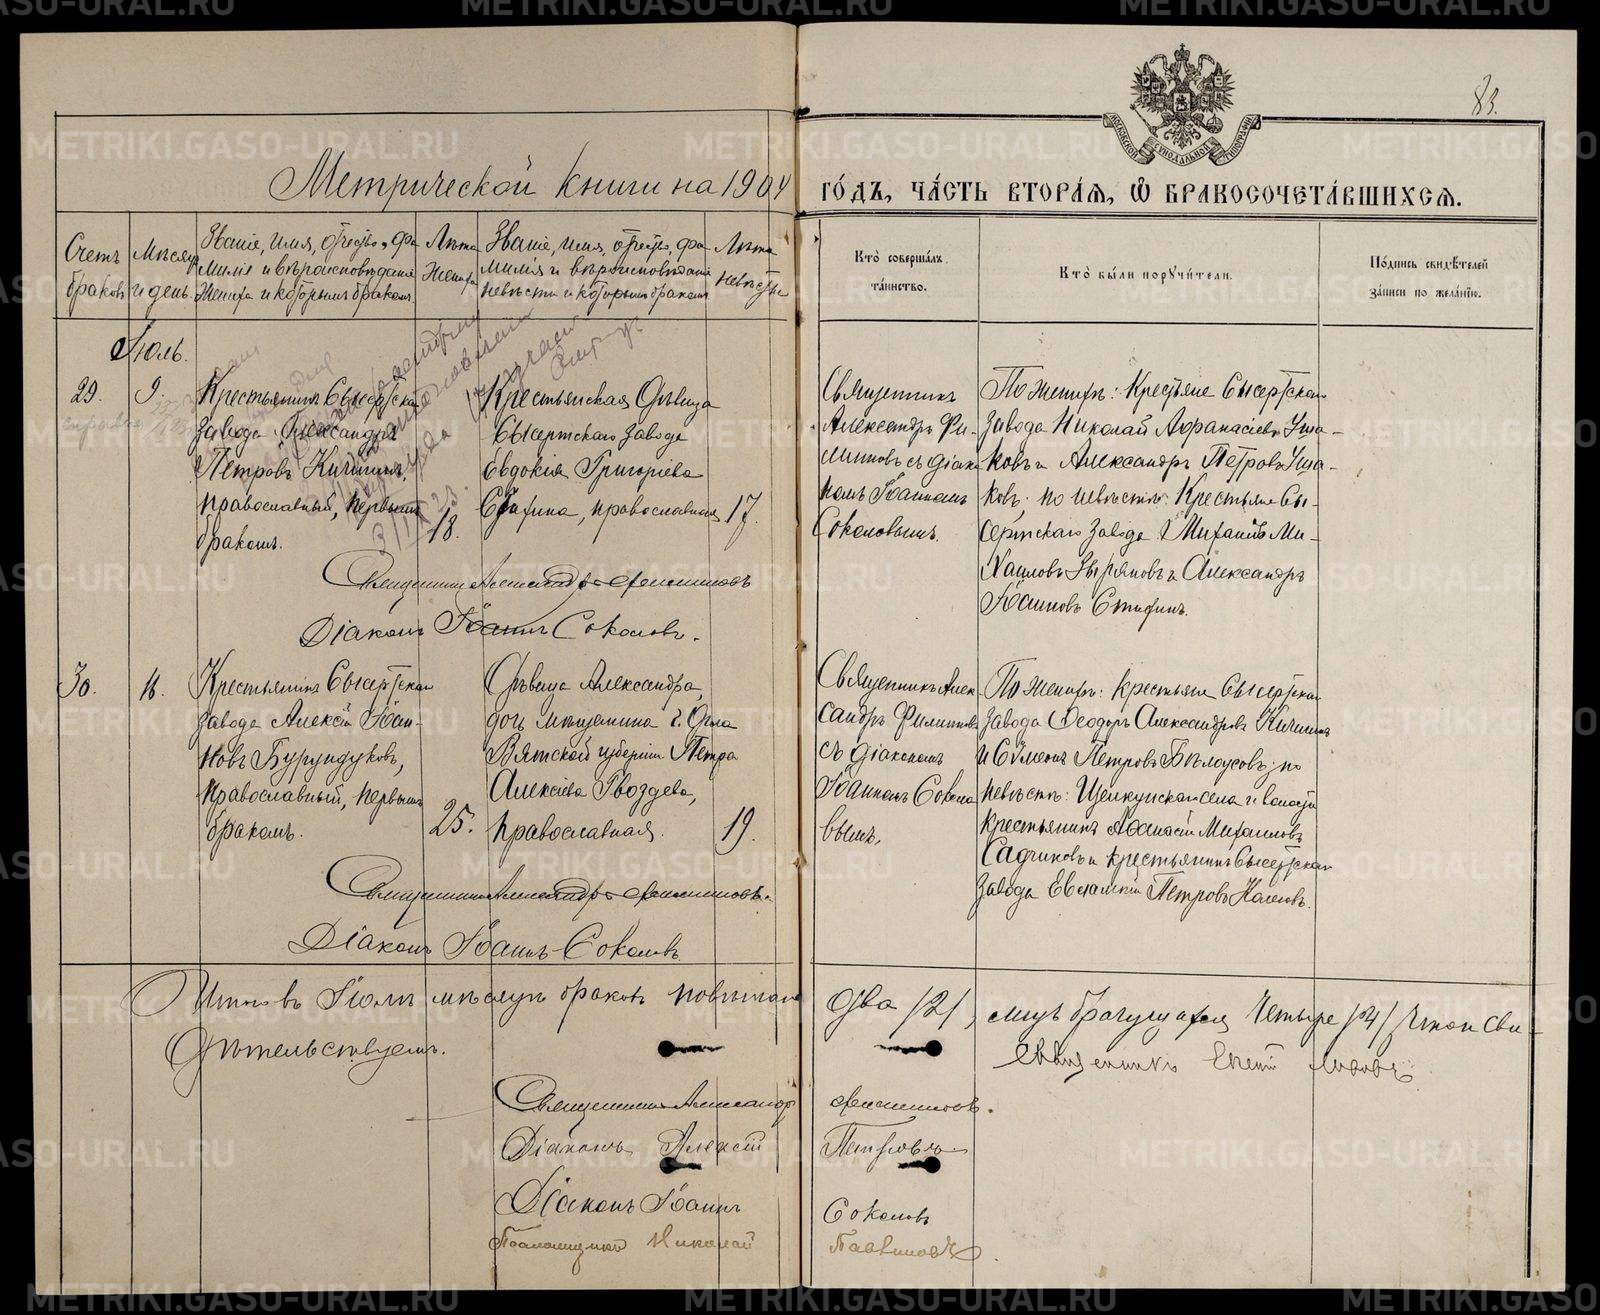 83.
МОСКОВСКОЙ СѴНОДАЛЬНОЙ ТИПОГРАФІИ
Метрической книги на 1904 го́дъ, ча́сть втора́я, ѡ҆ бракосочета́вшихся.
Счетъ браковъ
Мѣсяцъ и день
Званіе, имя, отчество, фа-
милія и вѣроисповѣданіе
жениха и которымъ бракомъ.
Лѣта жениха
Званіе, имя, отчество, фа-
милія и вѣроисповѣданіе
невѣсты и которымъ бракомъ.
Лѣта невѣсты
Кто̀ соверша́лъ
та́инство.
Кто̀ бы́ли поручи́тели.
По́дпись свидѣ́телей
за́писи по жела́нїю.
Іюль.
29.
9.
Крестьянинъ Сысертскаго
завода Александръ
Петровъ Кичигинъ,
православный, первымъ
бракомъ.
18.
Крестьянская дѣвица
Сысертскаго завода
Евдокія Григоріева
православная
17.
Священникъ
Александръ Фи-
липповъ съ діако-
номъ Іоанномъ
Соколовымъ.
По женихѣ: Крестьяне Сысертскаго
завода Николай Афанасіевъ Уша-
ковъ и Александръ Петровъ Уша-
ковъ; по невѣстѣ: Крестьяне Сы-
сертскаго завода Михаилъ Ми-
хаиловъ Зыряновъ и Александръ
Іоанновъ
Священникъ Александръ Филипповъ
Діаконъ Іоаннъ Соколовъ.
30.
16.
Крестьянинъ Сысертскаго
завода Алексій Іоан-
новъ Бурундуковъ,
православный, первымъ
бракомъ.
25.
Дѣвица Александра,
дочь мѣщанина г.
Вятской губерніи Петра
Алексіева Гвоздева,
православная.
19.
Священникъ Алек-
сандръ Филипповъ
съ діакономъ
Іоанномъ Соколо-
вымъ.
По женихѣ: крестьяне Сысертскаго
завода Ѳеодоръ Александровъ Кичигинъ
и Сѵмеонъ Петровъ Бѣлоусовъ; по
невѣстѣ: Щелкунскаго села и волости
крестьянинъ Аѳанасій Михаиловъ
Садчиковъ и крестьянинъ Сысертскаго
завода Евлампій Петровъ
Священникъ Александръ Филипповъ.
Діаконъ Іоаннъ Соколовъ
Итого въ Іюлѣ мѣсяцѣ браковъ повѣнчано два /2/, лицъ брачущихся четыре /4/, въ чемъ и сви-
дѣтельствуемъ.
Священникъ
Священникъ Александръ Филипповъ.
Діаконъ Алексій
Діаконъ Іоаннъ Соколовъ
Псаломщикъ Николай
METRIKI.GASO-URAL.RU